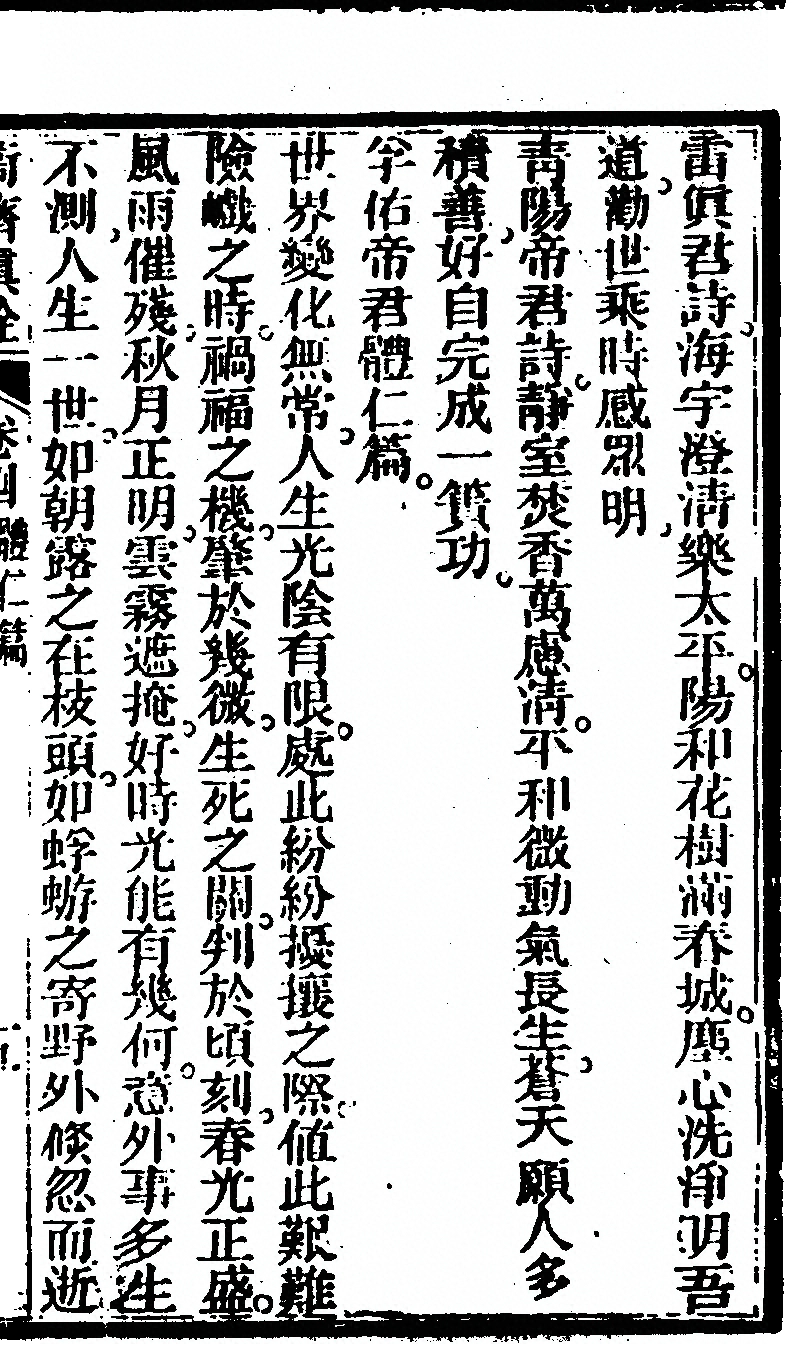 雷眞君詩海宇澄清樂太平陽和花樹滿春城塵心洗淨明吾
道勸世乘時感眾明
青陽帝君詩靜室焚香萬慮清平和微動氣長生蒼天願人多
積善好自完成一簣功
孚佑帝君體仁篇
世界變化無常人生光陰有限處此紛紛擾攘之際値此艱難
險巇之時禍福之機肇於幾微生死之關判於頃刻春光正盛
風雨催殘秋月正明雲霧遮掩好時光能有幾何意外事多生
不測人生一世如朝露之在枝頭如蜉蝣之寄野外倐忽而逝
卷四 體仁篇